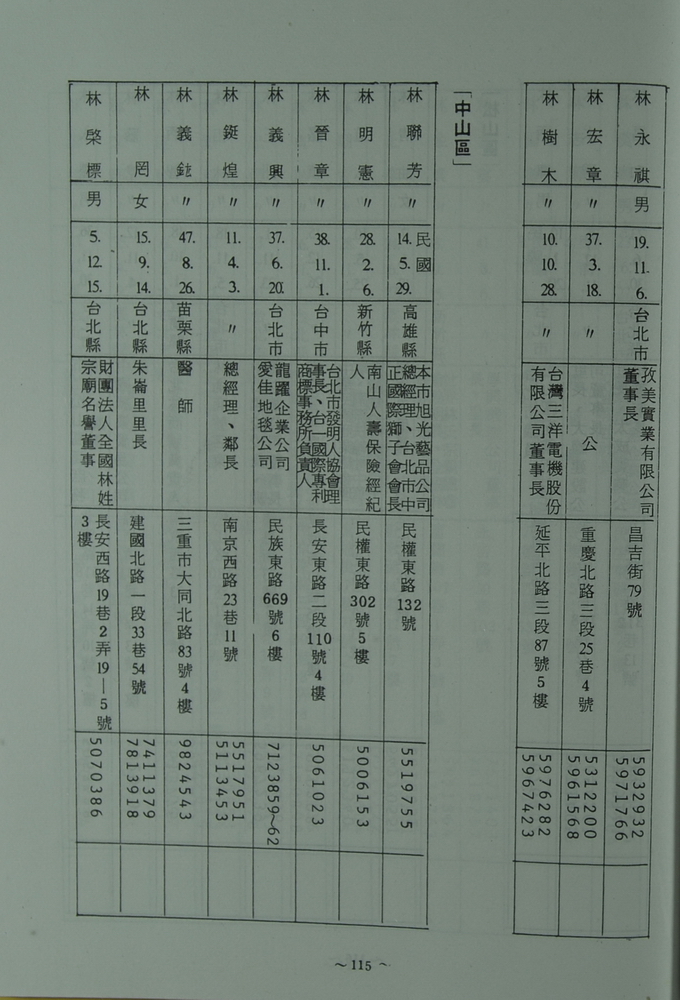 林永祺
男
19. 11. 6.
台北市
孜美實業有限公司
董事長
昌吉街79號
5932932
5971766
林宏章
〃
37. 3. 18.
〃
公
重慶北路三段25巷4號
5312200
5961568
林樹木
〃
10. 10. 28.
〃
台灣三洋電機股份
有限公司董事長
延平北路三段87號5樓
5976282
5967423
「中山區」
林聯芳
〃
民國
14. 5. 29.
高雄縣
本市旭光藝品公司
總經理、台北市中
正國際獅子會會長
民權東路132號
5519755
林明憲
〃
28. 2. 6.
新竹縣
南山人壽保險經紀
人
民權東路302號5樓
5006153
林晉章
〃
38. 11. 1.
台中市
台北市發明人協會理
事長、台一國際專利
商標事務所負責人
長安東路二段110號4樓
5061023
林義興
〃
37. 6. 20.
台北市
龍躍企業公司
愛佳地毯公司
民族東路669號6樓
7123859~62
林鋌煌
〃
11. 4. 3.
〃
總經理、鄰長
南京西路23巷11號
5517951
5113453
林義鉉
〃
47. 8. 26.
苗栗縣
醫師
三重市大同北路83號4樓
9824543
林罔
女
15. 9. 14.
台北縣
朱崙里里長
建國北路一段33巷54號
7411379
7813918
林棨標
男
5. 12. 15.
台北縣
財團法人全國林姓
宗廟名譽董事
長安西路19巷2弄19—5號
3樓
5070386
~115~